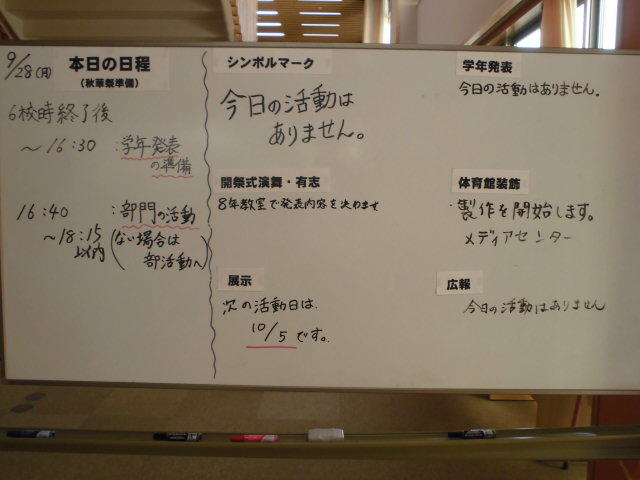 9/28(月)
本日の日程
(秋華祭準備)
6校時終了後
～16:30 :学年発表
の準備
16:40 :部門の活動
～18:15 (ない場合は
以内 部活動へ)
シンボルマーク
今日の活動は
ありません。
開祭式演舞・有志
8年教室で発表内容を決めます
展示
次の活動日は、
10/5です。
学年発表
今日の活動はありません。
体育館装飾
・製作を開始します。
メディアセンター
広報
今日の活動はありません